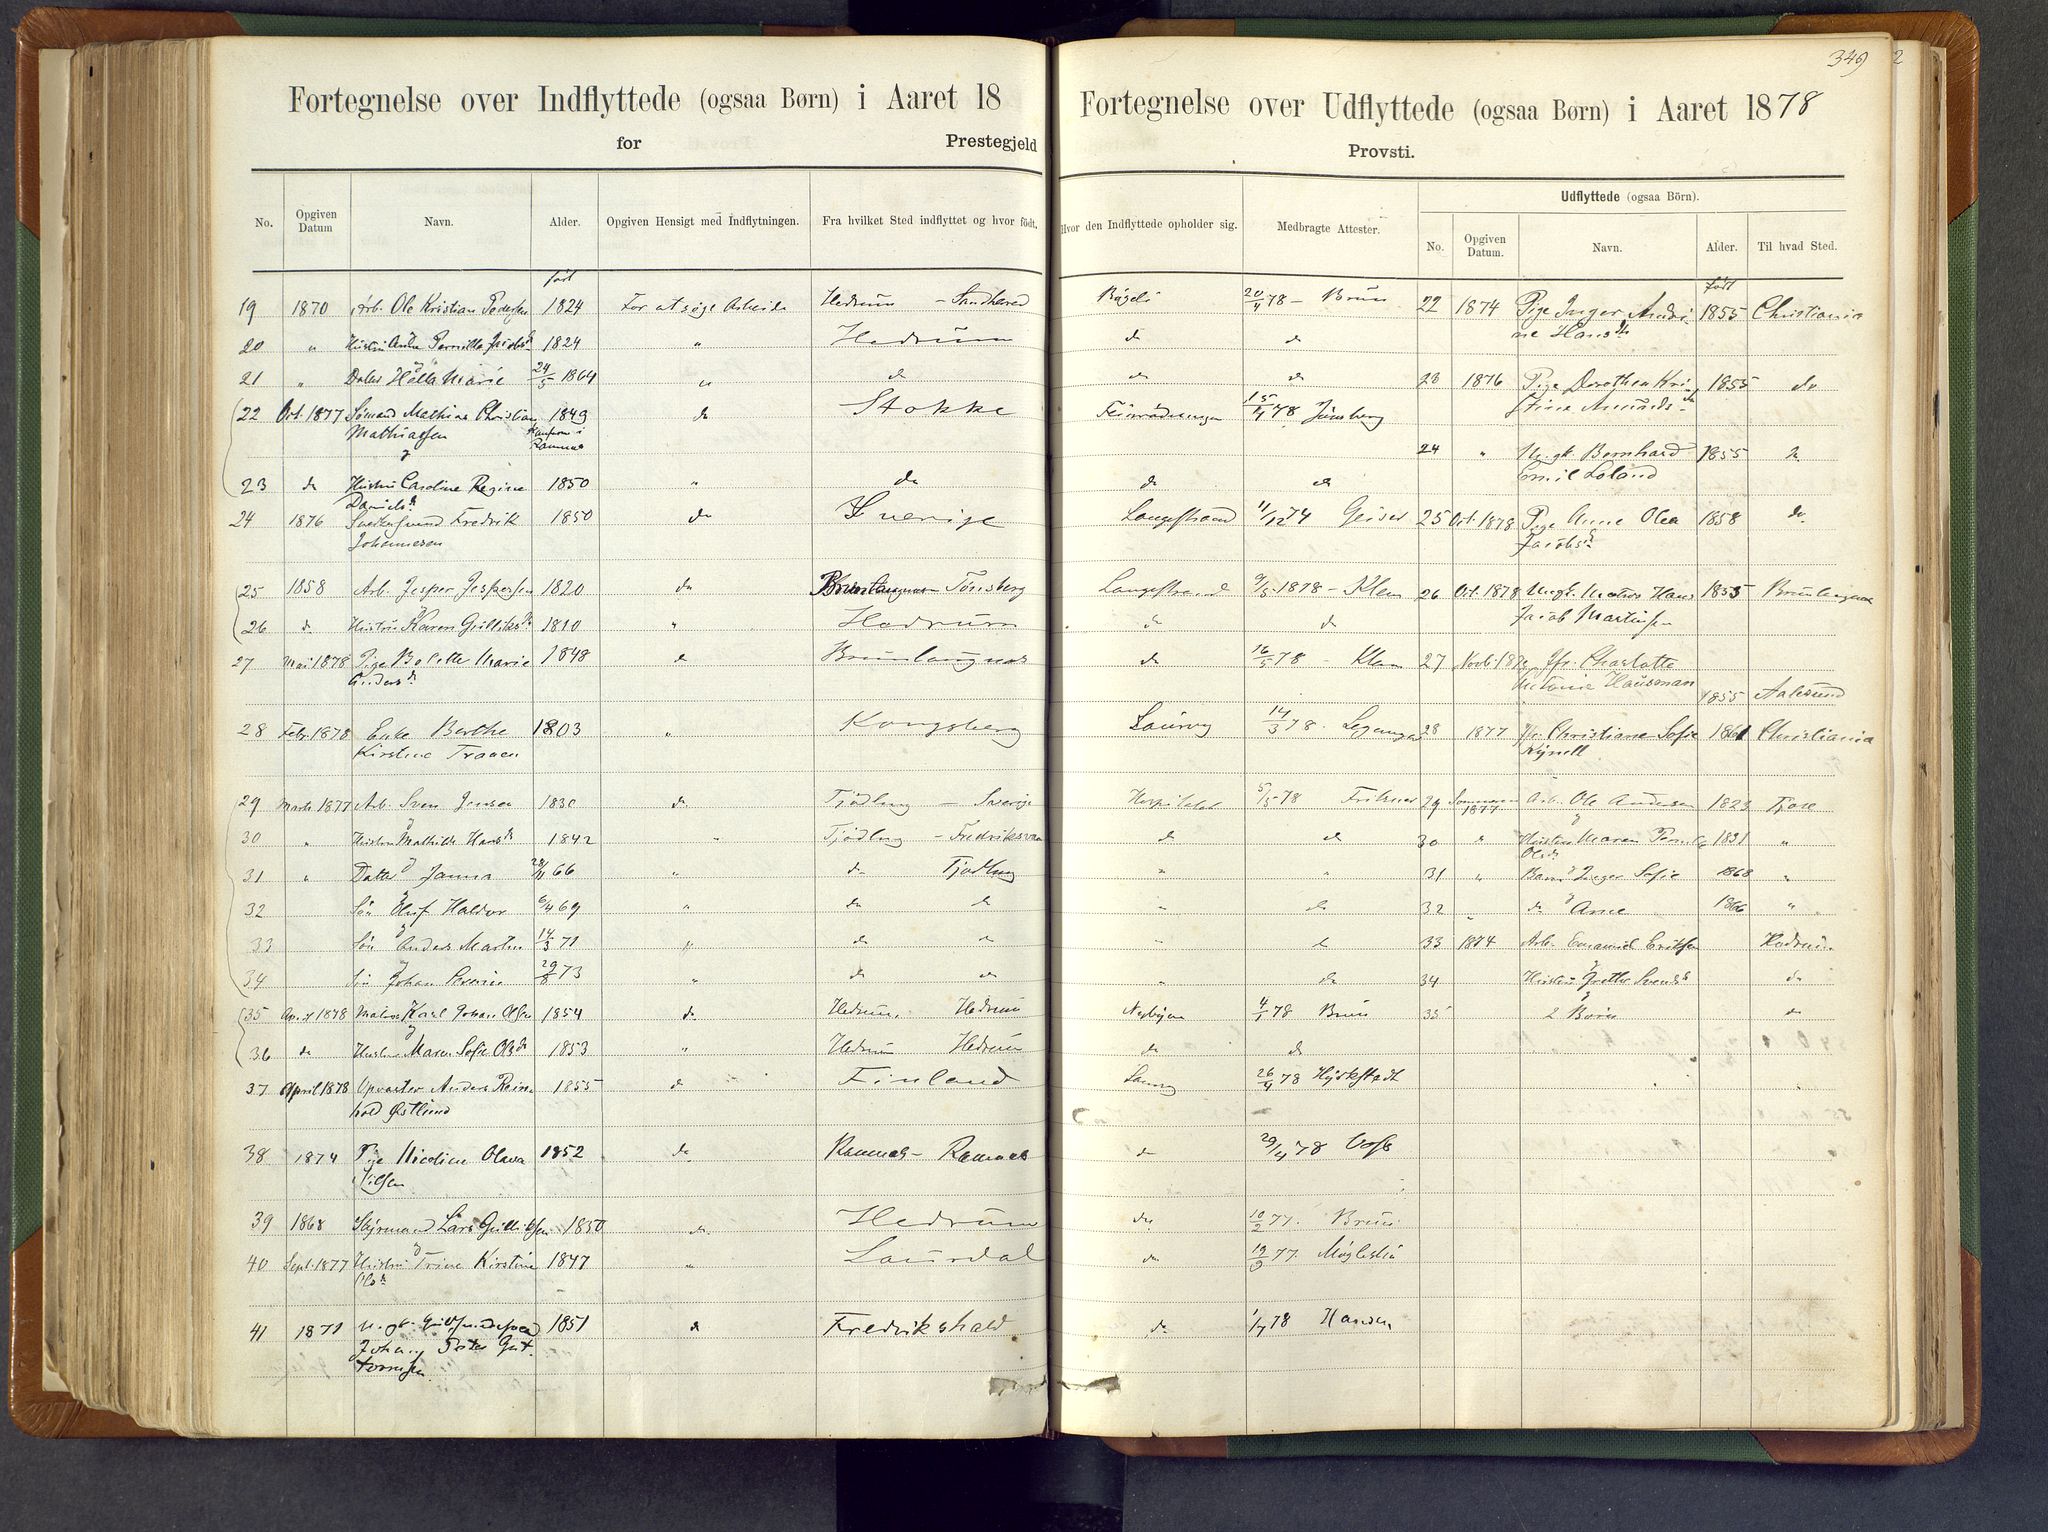 349 2
Fortegnelse over Indflyttede (ogsaa Børn) i Aaret 18
for Prestegjeld
No. Opgiven Datum Navn. Alder. Opgiven Hensigt med Indflytningen. Fra hvilket Sted indflyttet og hvor født.
født
19 1870 Arb. Ole Kristian Pedersen 1824 For at søge Arbeide Hedrum - Sandherred
20 " Hustru Anne Pernille Jacobsd 1824 " Hedrum
21 " Datter Helle Marie 24/5 1864 " do
22 Oct. 1877 Sömand Mathias Christian 1849 do Stokke
Mathiassen Konfirm i
Ramnæs
23 do Hustru Caroline Regine 1850 " do
Daniels d
24 1876 Fredrik 1850 do Sverige
Johannesen
25 1858 Arb. Jesper Jespersen 1820 do Tönsberg
26 do Hustru Karen Gulliksd 1810 " Hedrum
27 Mai 1878 Pige Bolette Marie 1848 do Brunlaugnæs
Anders d
28 Febr. 1878 Enke Berthe 1803 " Kongsberg
Kirstine Traaen
29 Marts 1877 Arb. Sven Jensen 1830 do Tjödling - Sverige
30 " Hustru Mathilde Hans d 1842 " Tjödling - Fredriksværn
31 " Datter Janna 28/11 66 " do Tjödling
32 Sön Oluf Haldor 6/4 69 " do do
33 Sön Anders Martin 14/3 71 " do do
34 Sön Johan Severin 29/8 73 " do do
35 April 1878 Matros Karl Johan Olsen 1854 do Hedrum, Hedrum
36 do Hustru Maren Sofie Olsd 1853 " Hedrum Hedrum
37 April 1878 Opvarter Anders Rein- 1855 do Finland
hold Østlund
38 1874 Pige Nicoline Olava 1852 do Ramnæs - Ramnæs
Nilsen
39 1868 Styrmand Lars Gulliksen 1850 do Hedrum
40 Sept. 1877 Hustru Trine Kirstine 1847 " Laurdal
Ols d
41 1871 U. gk. Guldsmedsvend 1851 do Fredrikshald
Johan Peter Gut-
tormsen
Fortegnelse over Udflyttede (ogsaa Børn) i Aaret 1878
Provsti.
Hvor den Indflyttede opholder sig. Medbragte Attester. Udflyttede (ogsaa Børn).
No. Opgiven Datum. Navn. Alder. Til hvad Sted.
født
20/4 78 - Bruun 22 1874 Pige Inger Andri- 1855 Christiania
do do ne Hans d
do do 23 1876 Pige Dorothea Kri- 1855 do
15/4 78 Jönsberg stine Amunds d
24 " U. gk. Bernhard 1855 do
do do Emil Loland
Langestrand 11/12 74 Geiser 25 Oct. 1878 Pige Anne Olea 1858 do
Jacobs d
Langestrand 9/5 1878 - Klem 26 Oct. 1878 Ungk. Matros Hans 1855 Brunlaugnæs
do do Jacob Martinsen
do 16/5 78 - Klem 27 Novb. Jfr. Charlotte
Antonie Hausman 1855 Aalesund
Laurvig 14/3 78 28 1877 Jfr. Christiane Sofie 1861 Christiania
Hospitalet 5/5 78 29 Sommeren 1877 Arb. Ole Andersen 1823 Tjose
do do 30 do Hustru Maren 1831 "
Olsd
" " 31 " Barn Inger Sofie 1868 "
" do 32 " do Arne 1866 "
" do 33 1874 Arb. Emanuel Eriksen Hedrum
" do 34 Hustru Grethe Svends d do
Nybyen 4/1 78 Bruun 35 2 Börn do
do do
Laurvig 26/4 78
do 29/4 78
do 10/2 77. Bruun
do 19/9 77.
do 1/7 78 Hansen